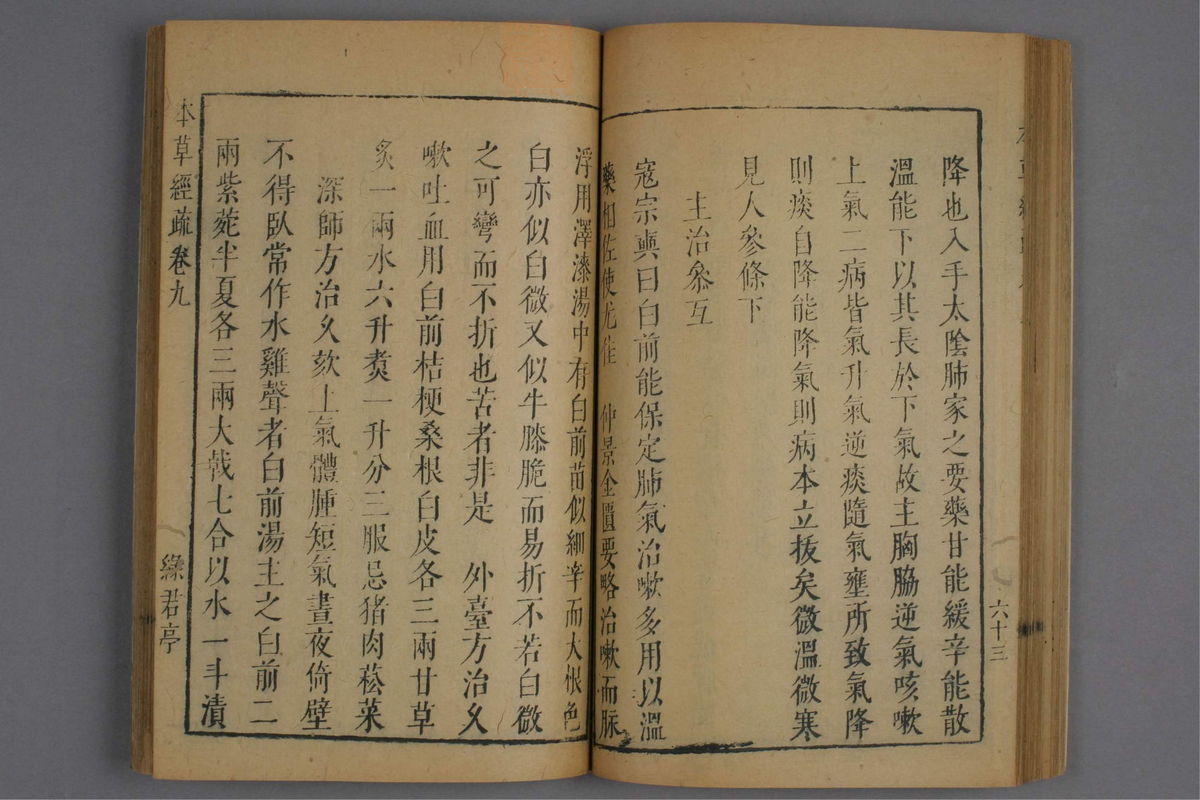 降也入手太陰肺家之要藥甘能緩辛能散
溫能下以其長於下氣故主胸脇逆氣咳嗽
上氣二病皆氣升氣逆痰隨氣壅所致氣降
則痰自降能降氣則病本立拔矣微溫微寒
見人參條下
主治叅互
寇宗奭曰白前能保定肺氣治嗽多用以溫
藥相佐使尤佳 仲景金匱要略治嗽而脉
浮用澤漆湯中有白前苗似細辛而大根色
白亦似白微又似牛膝脆而易折不若白微
之可彎而不折也苦者非是 外臺方治久
嗽吐血用白前桔梗桑根白皮各三兩甘草
炙一兩水六升煑一升分三服忌猪肉菘菜
深師方治久欬上氣體腫短氣晝夜倚壁
不得臥常作水雞聲者白前湯主之白前二
兩紫菀半夏各三兩大戟七合以水一斗漬
本草經疏 卷九
綠君亭
六十三